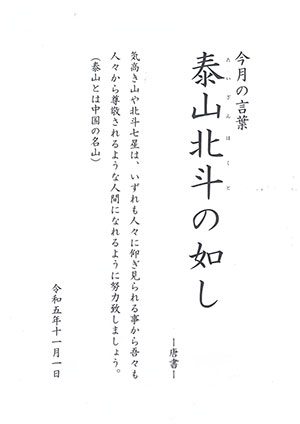 今月の言葉
泰山北斗の如し
たいざんほくと
―唐書―
気高き山や北斗七星は、いずれも人々に仰ぎ見られる事から吾々も
人々から尊敬されるような人間になれるように努力致しましょう。
(泰山とは中国の名山)
令和五年十一月一日